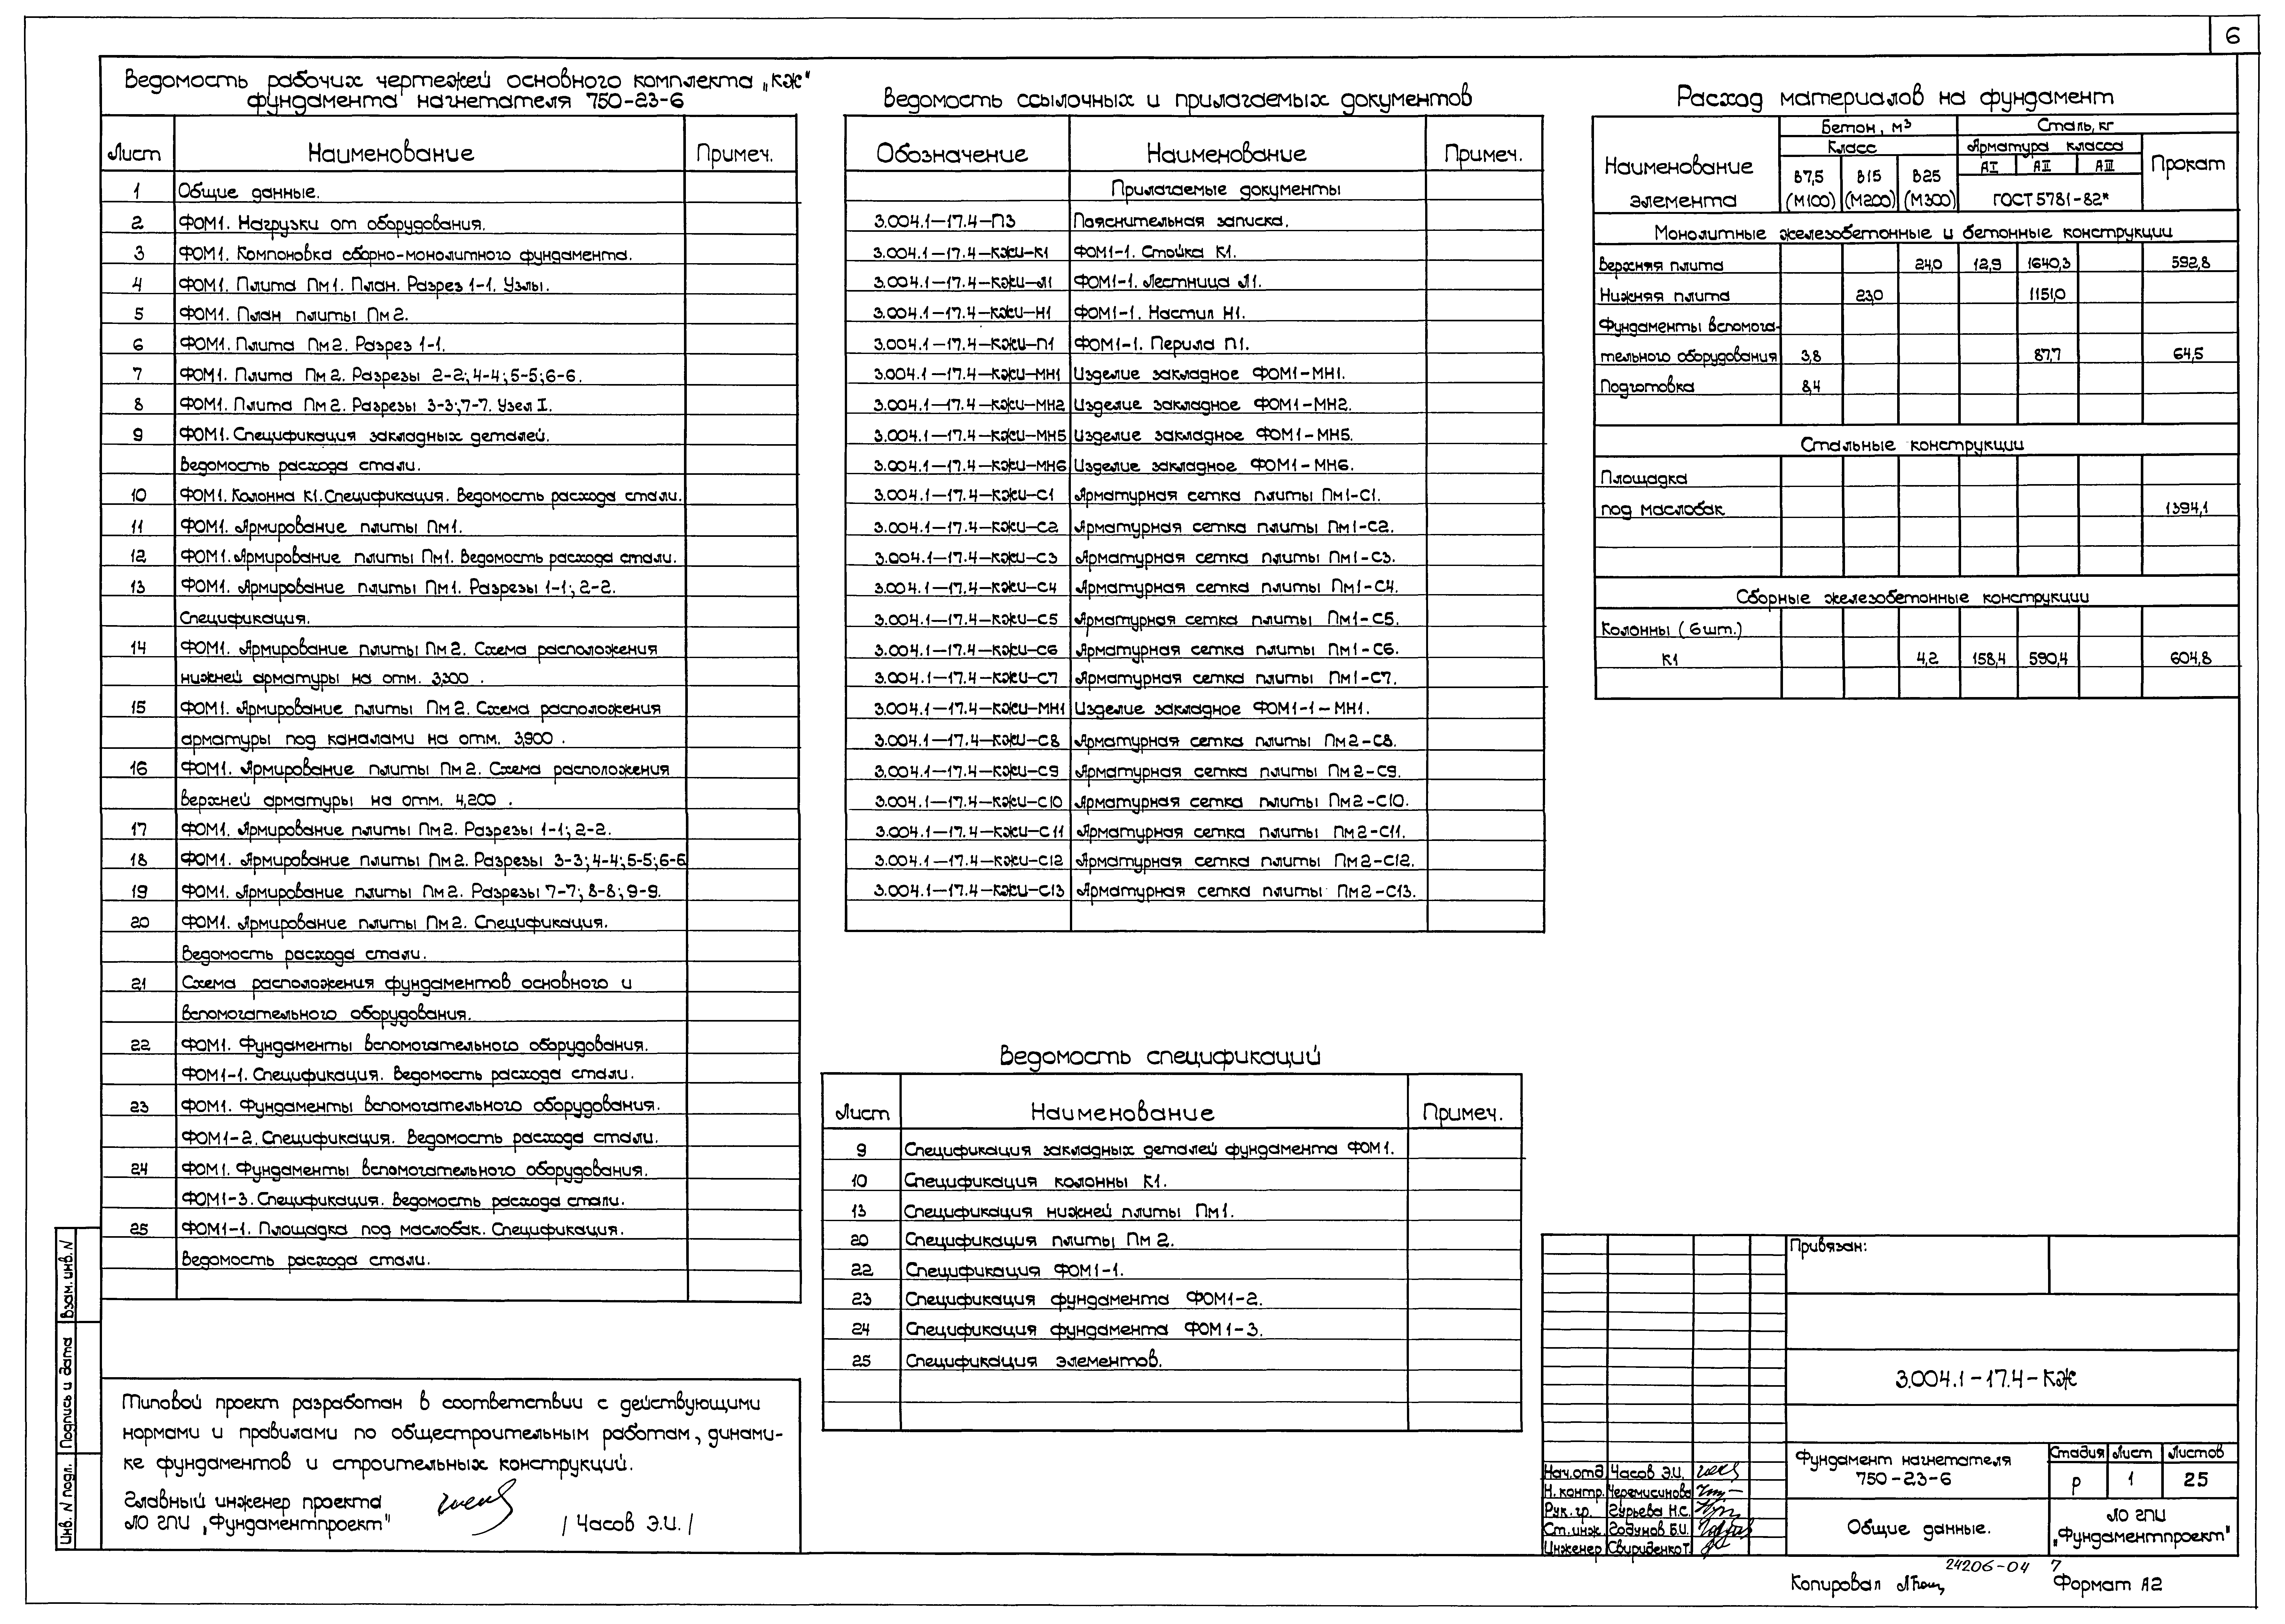 6
Ведомость рабочих чертежей основного комплекта „КЖ"
фундамента нагнетателя 750-23-6
Лист Наименование Примеч.
1 Общие данные.
2 ФОМ1. Нагрузки от оборудования.
3 ФОМ1. Компоновка сборно-монолитного фундамента.
4 ФОМ1. Плита Пм1. План. Разрез 1-1. Узлы.
5 ФОМ1. План плиты Пм2.
6 ФОМ1. Плита Пм2. Разрез 1-1.
7 ФОМ1. Плита Пм2. Разрезы 2-2; 4-4; 5-5; 6-6.
8 ФОМ1. Плита Пм2. Разрезы 3-3; 7-7. Узел I.
9 ФОМ1. Спецификация закладных деталей.
Ведомость расхода стали.
10 ФОМ1. Колонна К1. Спецификация. Ведомость расхода стали.
11 ФОМ1. Армирование плиты Пм1.
12 ФОМ1. Армирование плиты Пм1. Ведомость расхода стали.
13 ФОМ1. Армирование плиты Пм1. Разрезы 1-1; 2-2.
Спецификация.
14 ФОМ1. Армирование плиты Пм2. Схема расположения
нижней арматуры на отм. 3,300 .
15 ФОМ1. Армирование плиты Пм2. Схема расположения
арматуры под каналами на отм. 3,900 .
16 ФОМ1. Армирование плиты Пм2. Схема расположения
верхней арматуры на отм. 4,200 .
17 ФОМ1. Армирование плиты Пм2. Разрезы 1-1; 2-2.
18 ФОМ1. Армирование плиты Пм2. Разрезы 3-3; 4-4; 5-5; 6-6
19 ФОМ1. Армирование плиты Пм2. Разрезы 7-7; 8-8; 9-9.
20 ФОМ1. Армирование плиты Пм2. Спецификация.
Ведомость расхода стали.
21 Схема расположения фундаментов основного и
вспомогательного оборудования.
22 ФОМ1. Фундаменты вспомогательного оборудования.
ФОМ1-1. Спецификация. Ведомость расхода стали.
23 ФОМ1. Фундаменты вспомогательного оборудования.
ФОМ1-2. Спецификация. Ведомость расхода стали.
24 ФОМ1. Фундаменты вспомогательного оборудования.
ФОМ1-3. Спецификация. Ведомость расхода стали.
25 ФОМ1-1. Площадка под маслобак. Спецификация.
Ведомость расхода стали.
Типовой проект разработан в соответствии с действующими
нормами и правилами по общестроительным работам, динами-
ке фундаментов и строительных конструкций.
Главный инженер проекта
ЛО ГПИ „Фундаментпроект" / Часов Э.И. /
Ведомость ссылочных и прилагаемых документов
Обозначение Наименование Примеч.
Прилагаемые документы
3.004.1-17.4-ПЗ Пояснительная записка.
3.004.1-17.4-КЖИ-К1 ФОМ1-1. Стойка К1.
3.004.1-17.4-КЖИ-Л1 ФОМ1-1. Лестница Л1.
3.004.1-17.4-КЖИ-Н1 ФОМ1-1. Настил Н1.
3.004.1-17.4-КЖИ-П1 ФОМ1-1. Перила П1.
3.004.1-17.4-КЖИ-МН1 Изделие закладное ФОМ1-МН1.
3.004.1-17.4-КЖИ-МН2 Изделие закладное ФОМ1-МН2.
3.004.1-17.4-КЖИ-МН5 Изделие закладное ФОМ1-МН5.
3.004.1-17.4-КЖИ-МН6 Изделие закладное ФОМ1-МН6.
3.004.1-17.4-КЖИ-С1 Арматурная сетка плиты Пм1-С1.
3.004.1-17.4-КЖИ-С2 Арматурная сетка плиты Пм1-С2.
3.004.1-17.4-КЖИ-С3 Арматурная сетка плиты Пм1-С3.
3.004.1-17.4-КЖИ-С4 Арматурная сетка плиты Пм1-С4.
3.004.1-17.4-КЖИ-С5 Арматурная сетка плиты Пм1-С5.
3.004.1-17.4-КЖИ-С6 Арматурная сетка плиты Пм1-С6.
3.004.1-17.4-КЖИ-С7 Арматурная сетка плиты Пм1-С7.
3.004.1-17.4-КЖИ-МН1 Изделие закладное ФОМ1-1-МН1.
3.004.1-17.4-КЖИ-С8 Арматурная сетка плиты Пм2-С8.
3.004.1-17.4-КЖИ-С9 Арматурная сетка плиты Пм2-С9.
3.004.1-17.4-КЖИ-С10 Арматурная сетка плиты Пм2-С10.
3.004.1-17.4-КЖИ-С11 Арматурная сетка плиты Пм2-С11.
3.004.1-17.4-КЖИ-С12 Арматурная сетка плиты Пм2-С12.
3.004.1-17.4-КЖИ-С13 Арматурная сетка плиты Пм2-С13.
Ведомость спецификаций
Лист Наименование Примеч.
9 Спецификация закладных деталей фундамента ФОМ1.
10 Спецификация колонны К1.
13 Спецификация нижней плиты Пм1.
20 Спецификация плиты Пм2.
22 Спецификация ФОМ1-1.
23 Спецификация фундамента ФОМ1-2.
24 Спецификация фундамента ФОМ1-3.
25 Спецификация элементов.
Расход материалов на фундамент
Наименование элемента Бетон, м³ Сталь, кг
Класс Арматура класса Прокат
В7,5 (М100) В15 (М200) В25 (М300) АI АII АIII
ГОСТ 5781-82*
Монолитные железобетонные и бетонные конструкции
Верхняя плита 24,0 12,9 1640,3 592,8
Нижняя плита 23,0 1151,0
Фундаменты вспомога-
тельного оборудования 3,8 87,7 64,5
Подготовка 8,4
Стальные конструкции
Площадка
под маслобак 1394,1
Сборные железобетонные конструкции
Колонны (6шт.)
К1 4,2 158,4 590,4 604,8
Привязан:
3.004.1-17.4-КЖ
Фундамент нагнетателя
750-23-6
Стадия Лист Листов
Р 1 25
Общие данные.
ЛО ГПИ
„Фундаментпроект"
Нач.отд. Часов Э.И.
Н. контр. Черемисинова
Рук. гр. Гурьева Н.С.
Ст. инж. Годунов Б.И.
Инженер Свириденко Т.
24206-04 7
Копировал Формат А2
Взам. инв. N
Подпись и дата
Инв. N подл.